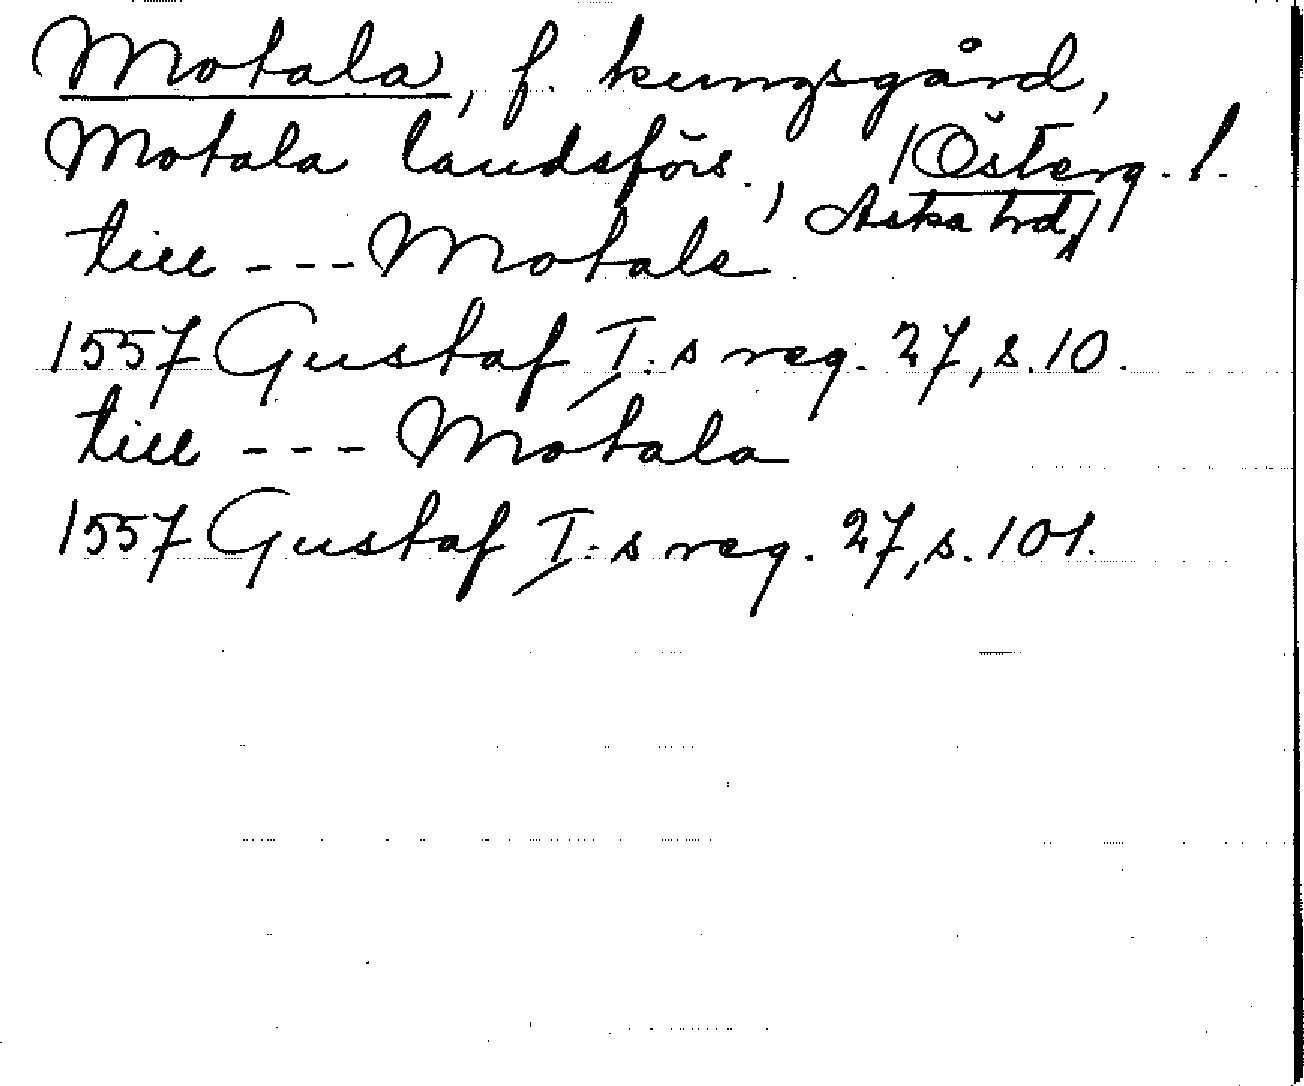 Motala, f. kungsgård,
Motala landsförs., Österg. l.
Aska hrd,
till --- Motale
1557 Gustaf I:s reg. 27, s. 10.
till --- Motala
1557 Gustaf I:s reg. 27, s. 101.